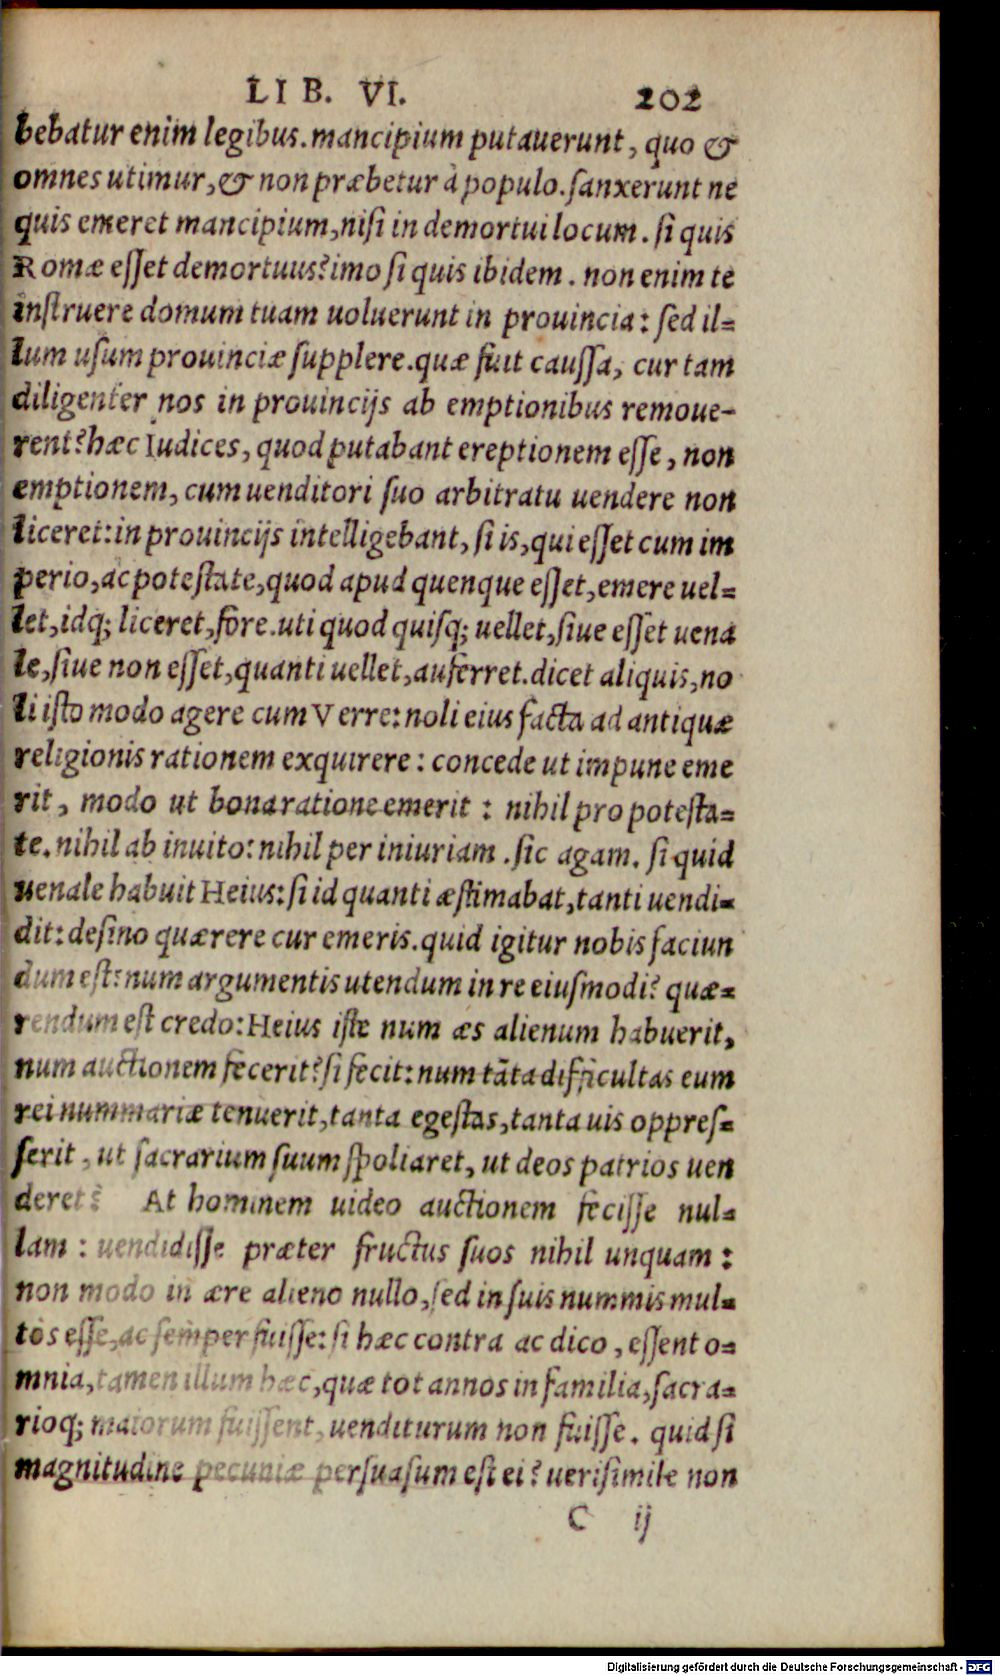 LIB. VI. 202
bebatur enim legibus. mancipium putauerunt, quo &
omnes utimur, & non præbetur à populo. sanxerunt ne
quis emeret mancipium, nisi in demortui locum. si quis
Romæ esset demortuus? imo si quis ibidem. non enim te
instruere domum tuam uoluerunt in prouincia: sed il=
lum usum prouinciæ supplere. quæ fuit caussa, cur tam
diligenter nos in prouincijs ab emptionibus remoue-
rent? hæc Iudices, quod putabant ereptionem esse, non
emptionem, cum uenditori suo arbitratu uendere non
liceret: in prouincijs intelligebant, si is, qui esset cum im
perio, ac potestate, quod apud quenque esset, emere uel=
let, idq; liceret, fore. uti quod quisq; uellet, siue esset uena
le, siue non esset, quanti uellet, auferret. dicet aliquis, no
li isto modo agere cum Verre: noli eius facta ad antiquæ
religionis rationem exquirere: concede ut impune eme
rit, modo ut bona ratione emerit: nihil pro potesta=
te. nihil ab inuito: nihil per iniuriam. sic agam. si quid
uenale habuit Heius: si id quanti æstimabat, tanti uendi=
dit: desino quærere cur emeris. quid igitur nobis faciun
dum est? num argumentis utendum in re eiusmodi? quæ=
rendum est credo: Heius iste num æs alienum habuerit,
num auctionem fecerit? si fecit: num tāta difficultas eum
rei nummariæ tenuerit, tanta egestas, tanta uis oppres=
serit, ut sacrarium suum spoliaret, ut deos patrios uen
deret? At hominem uideo auctionem fecisse nul=
lam: uendidisse præter fructus suos nihil unquam:
non modo in ære alieno nullo, sed in suis nummis mul=
tos esse, ac semper fuisse: si hæc contra ac dico, essent o=
mnia, tamen illum hæc, quæ tot annos in familia, sacra=
rioq; maiorum fuissent, uenditurum non fuisse. quid si
magnitudine pecuniæ persuasum est ei? uerisimile non
C ij
Digitalisierung gefördert durch die Deutsche Forschungsgemeinschaft - DFG